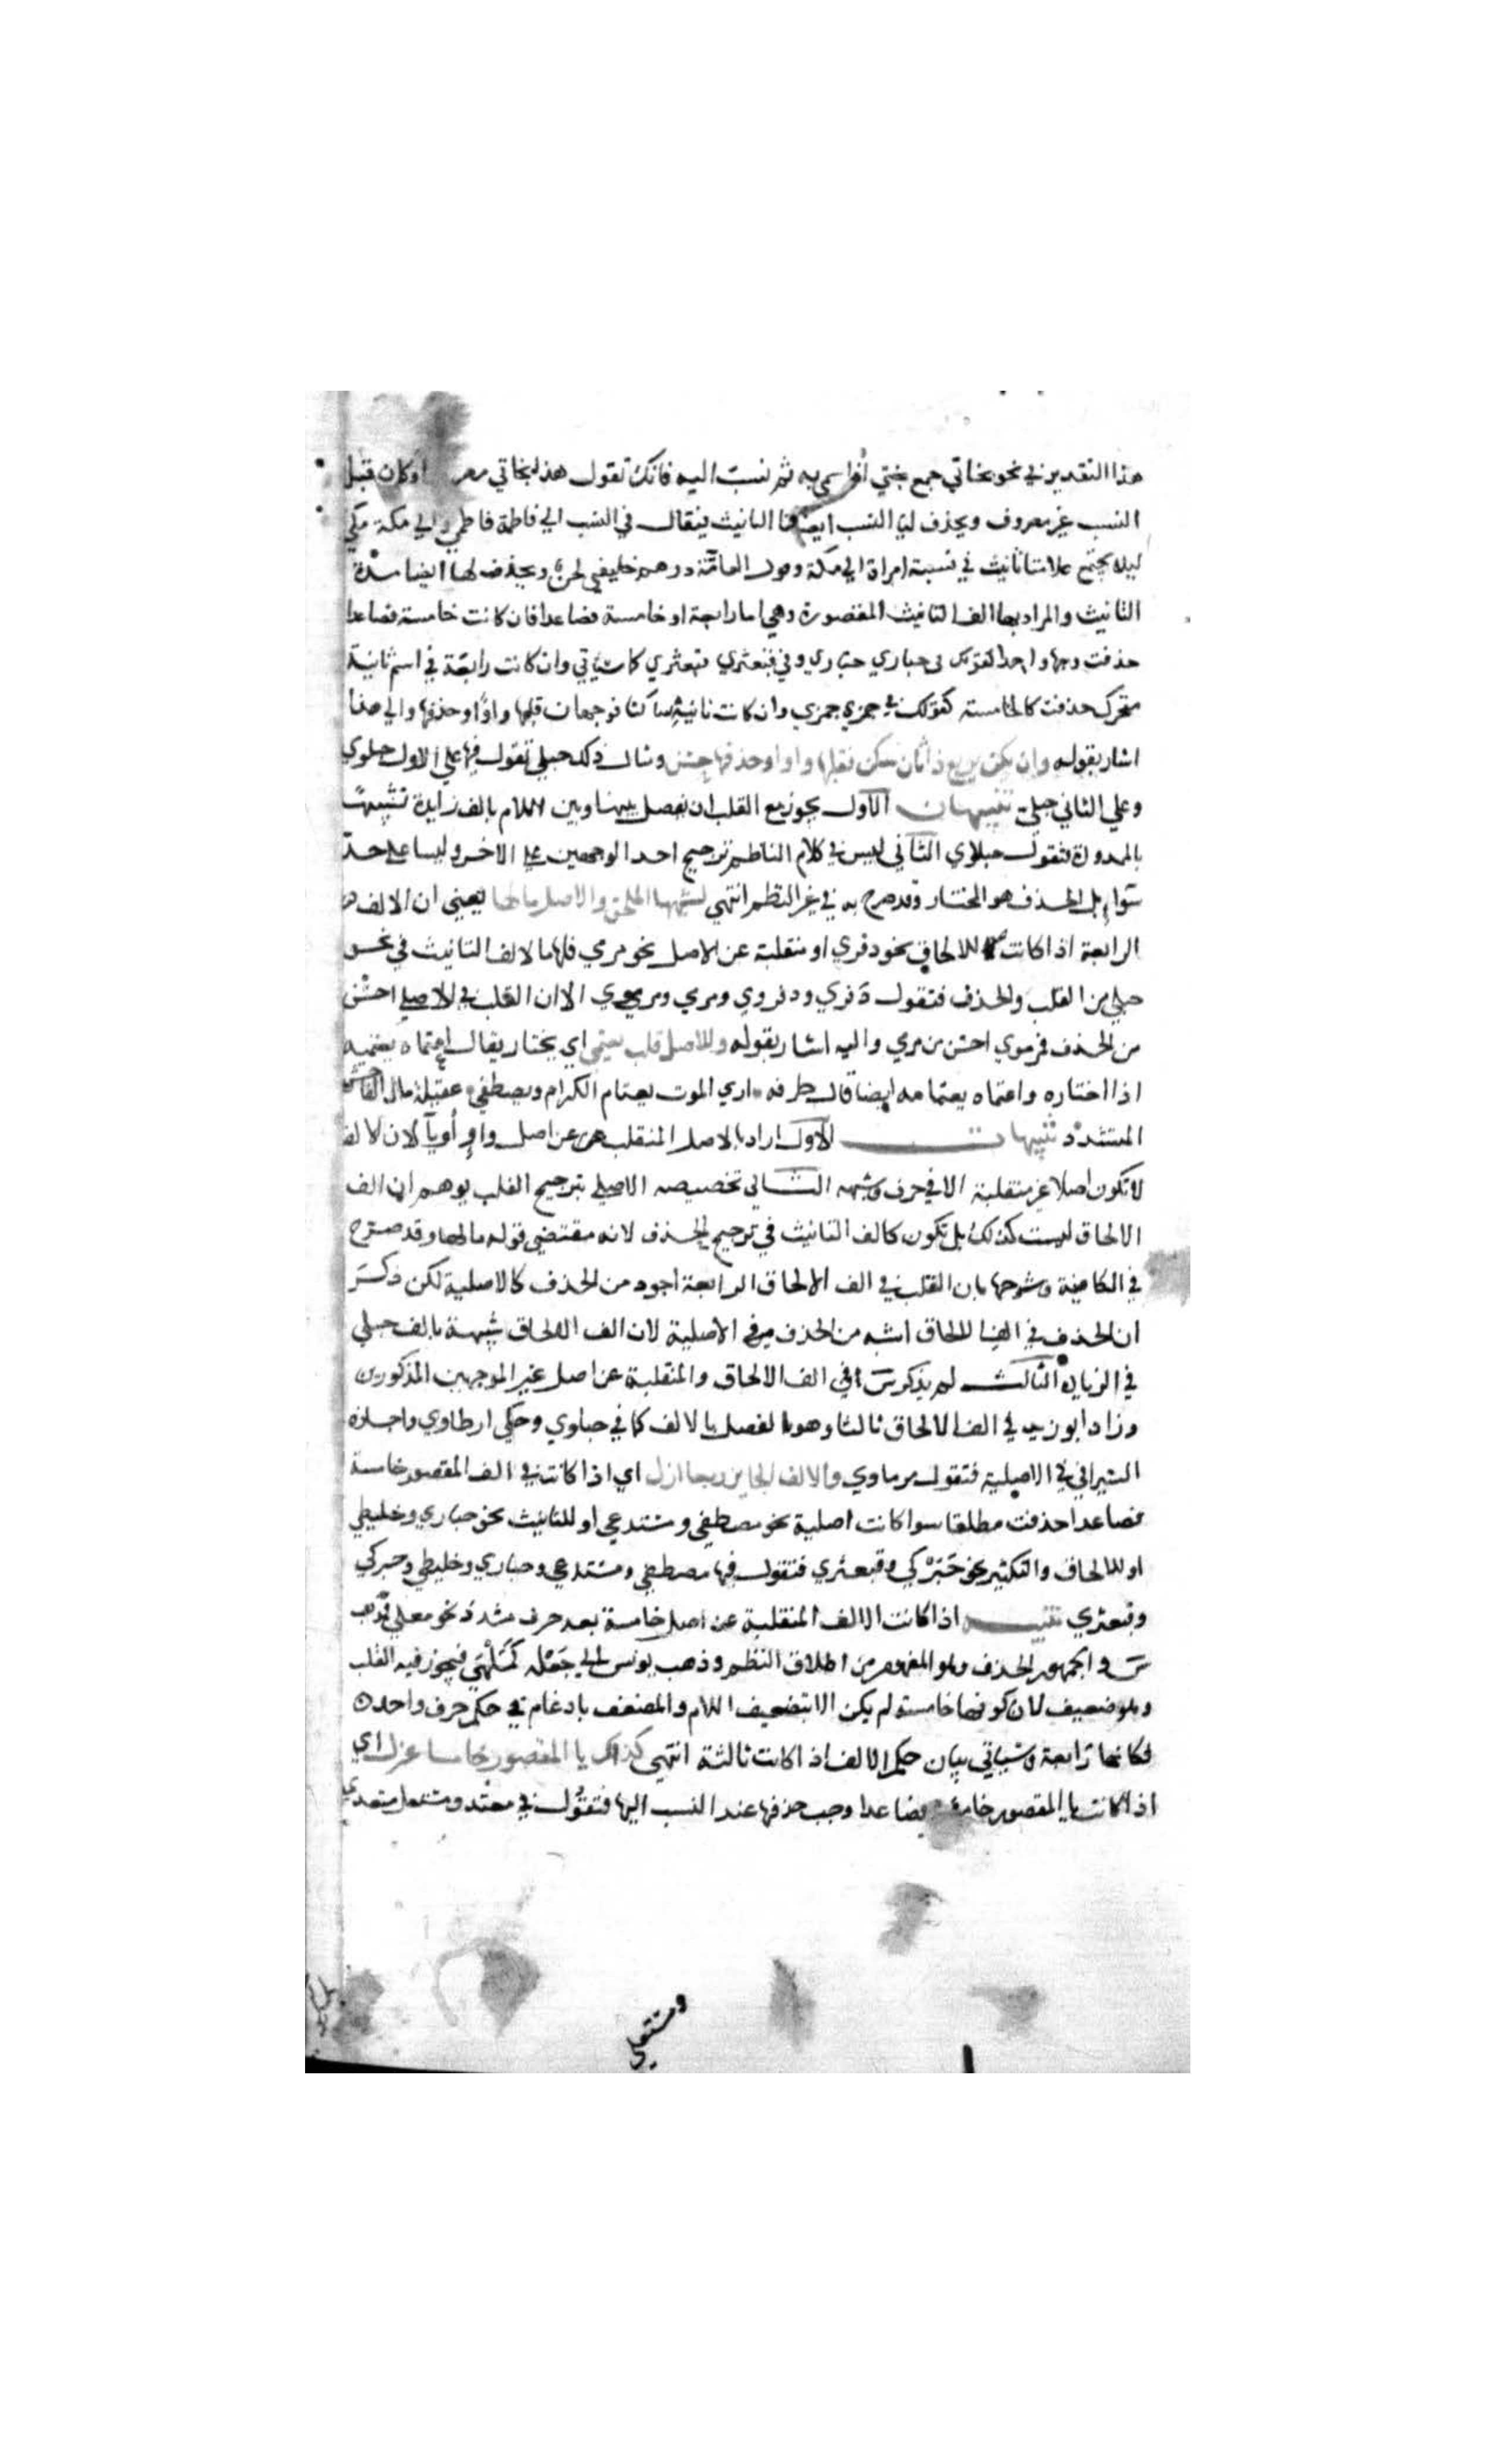 هذا التقدير في نحو بخاتي جمع بختي اذا سمي به ثم نسبت اليه فانك تقول هذا بخاتي وكان قبل
النسب غير معروف ويحذف لياء النسب ايضا تا التانيث فيقال في النسب الي فاطمة فاطمي والي مكة مكي
ليلا يجتمع علامتا تانيث في نسبة امراة الي مكة وقول العامة درهم خليفتي لحن ويحذف لها ايضا مدة
التانيث والمراد بها الف التانيث المقصورة وهي اما رابعة او خامسة فصاعدا فان كانت خامسة فصاعدا
حذفت وجها واحدا كقولك في حباري حباري وفي قبعثري قبعثري كما سياتي وان كانت رابعة في اسم ثانيه
متحرك حذفت كالخامسة كقولك في جمزي جمزي وان كانت ثانيه ساكنا فوجهان قلبها واوا وحذفها والي هذا
اشار بقوله وان تكن تربع ذا ثان سكن فقلبها واوا وحذفها حسن ومثال ذلك حبلي تقول فيها علي الاول حبلوي
وعلي الثاني حبلي تنبيهان الاول يجوز مع القلب ان يفصل بينها وبين اللام بالف زايدة تشبيها
بالمدودة فتقول حبلاوي الثاني ليس في كلام الناظم ترجيح احد الوجهين علي الاخر وليسا علي حد
سواء بل الحذف هو المختار وقد صرح به في غير النظم انتهي لشبهها الملحق والاصل ما لها يعني ان الالف
الرابعة اذا كانت للالحاق نحو دفري او منقلبة عن اصل نحو مرمي فلها ما لالف التانيث في نحو
حبلي من القلب والحذف فتقول ذفري ودفروي ومرمي ومرموي الا ان القلب في الاصلي احسن
من الحذف فمرموي احسن من مرمي واليه اشار بقوله وللاصل قلب يعتمي اي يختار يقال اعتماه يعتميه
اذا اختاره واعتماه يعتامه ايضا قال طرفه اري الموت يعتام الكرام ويصطفي عقيلة مال الفاحش
المتشدد تنبيهات الاول اراد بالاصل المنقلب عن اصل واو أو يآ لان الالف
لا تكون اصلا غير منقلبة الا في حرف وشبهه الثاني تخصيصه الاصلي بترجيح القلب يوهم ان الف
الالحاق ليست كذلك بل تكون كالف التانيث في ترجيح الحذف لانه مقتضي قوله ما لها وقد صرح
في الكافية وشرحها بان القلب في الف الالحاق الرابعة اجود من الحذف كالاصلية لكن ذكر
ان الحذف في الف الالحاق اشبه من الحذف في الاصلية لان الف الالحاق شبيهة بالف حبلي
في الزيادة الثالث لم يذكر س في الف الالحاق والمنقلبة عن اصل غير الوجهين المذكورين
وزاد ابو زيد في الف الالحاق ثالثا وهو الفصل بالالف كما في حبلاوي وحكي ارطاوي واجازه
السيرافي في الاصلية فتقول مرماوي والالف الجايز اربعا ازل اي اذا كانت الف المقصور خامسة
فصاعدا حذفت مطلقا سوا كانت اصلية نحو مصطفي ومستدعي او للتانيث نحو حباري وخليطي
او للالحاق والتكثير نحو حبركي وقبعثري فتقول فيها مصطفي ومستدعي وحباري وخليطي وحبركي
وقبعثري تنبيه اذا كانت الالف المنقلبة عن اصل خامسة بعد حرف مشدد نحو معلي فمذهب
س والجمهور الحذف وهو المفهوم من اطلاق النظم وذهب يونس الي جعله كملهي فيجوز فيه القلب
وهو ضعيف لان كونها خامسة لم يكن الا بتضعيف اللام والمضعف بادغام في حكم حرف واحد
فكانها رابعة وسياتي بيان حكم الالف اذا كانت ثالثة انتهي كذاك يا المنقوص خامسا عزل اي
اذا كانت يا المقصور خامسة فصاعدا وجب حذفها عند النسب اليها فتقول في معتد ومستعل معتدي
ومستعلي